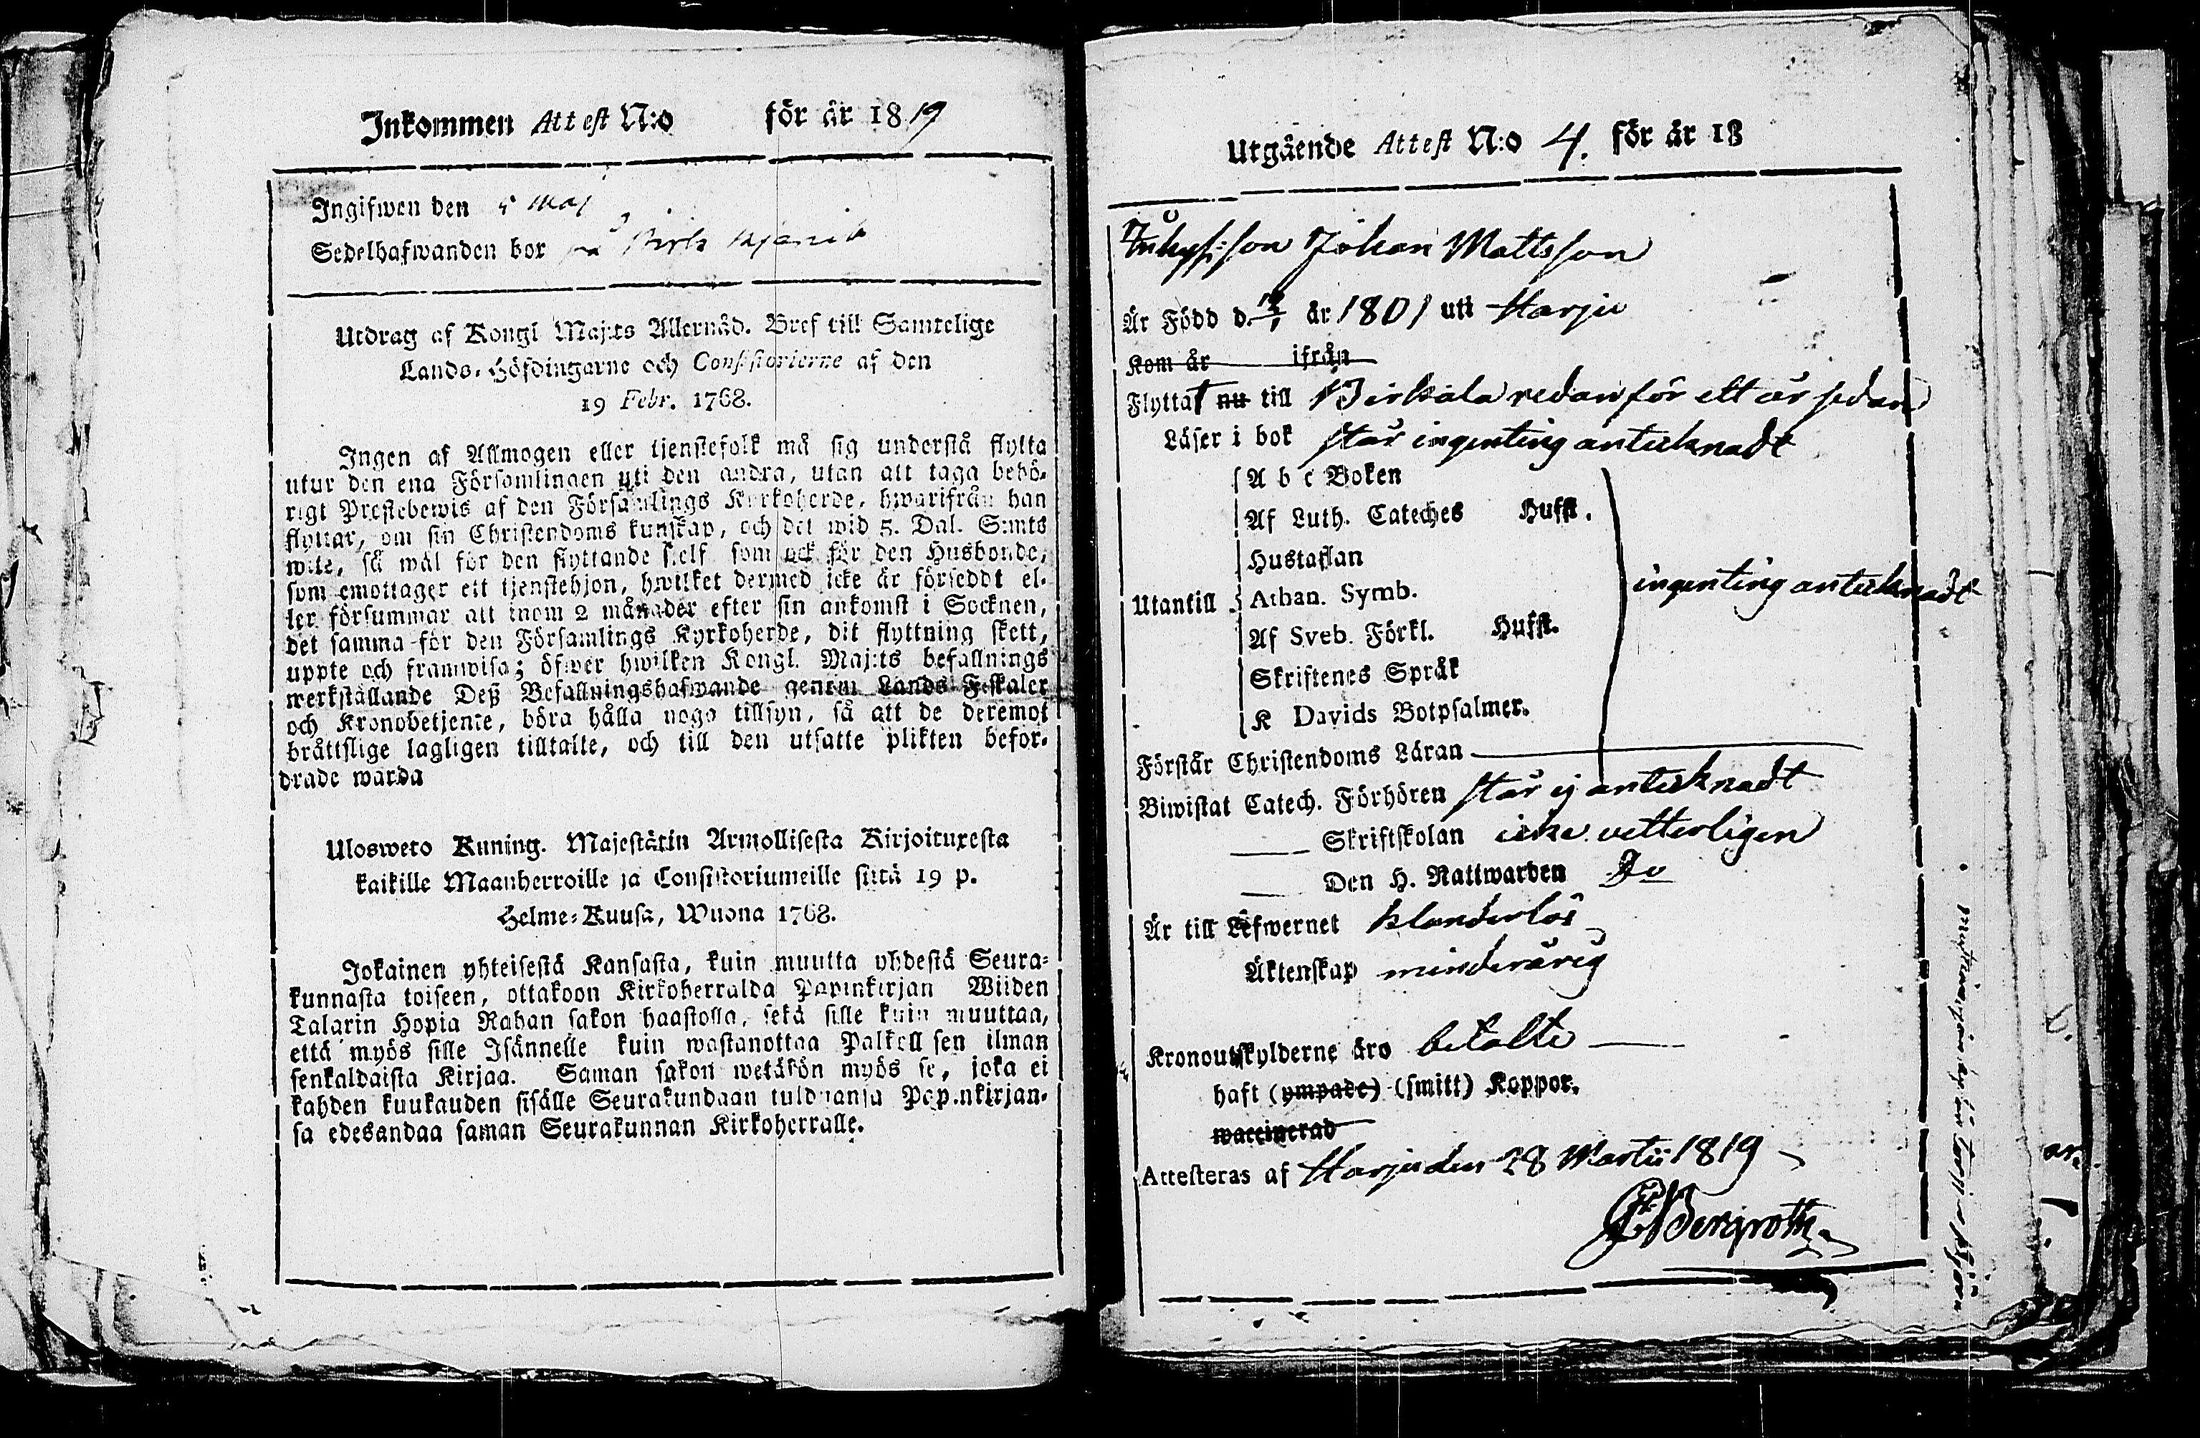 Inkommen Attest N:o för år 1819
Ingifwen den 5 Maj
Sedelhafwanden bor på
Utdrag af Kongl Maj:ts Allernåd. Bref till Samtelige
Lands-Höfdingarne och Consistorierne af den
19 Febr. 1768.
Ingen af Allmogen eller tjenstefolk må sig understå flytta
utur den ena Församlingen uti den andra, utan att taga behö-
rigt Prestebewis af den Församlings Kyrkoherde, hwarifrån han
flyttar, om sin Christendoms kunskap, och det wid 5. Dal. S:mts
wite, så wäl för den flyttande sielf som ock för den Husbonde,
som emottager ett tjenstehjon, hwilket dermed icke är förseddt el-
ler försummar att inom 2 månader efter sin ankomst i Socknen,
det samma för den Församlings Kyrkoherde, dit flyttning skett,
uppte och framwisa; öfwer hwilken Kongl. Maj:ts befallnings
werkställande Deß Befallningshafwande genom Lands Feskaler
och Kronobetjente, böra hålla noga tillsyn, så att de deremot
bråttslige lagligen tilltalte, och till den utsatte plikten befor-
drade warda
Ulosweto Kuning. Majestätin Armollisesta Kirjoituxesta
kaikille Maanherroille ja Consistoriumeille siitä 19 p.
Helme-Kuusa, Wuona 1768.
Jokainen yhteisestä Kansasta, kuin muutta yhdestä Seura-
kunnasta toiseen, ottakoon Kirkoherralda Papinkirjan Wiiden
Talarin Hopia Rahan sakon haastolla, sekä sille kuin muuttaa,
että myös sille Isännelle kuin wastanottaa Palkollisen ilman
senkaldaista Kirjaa. Saman sakon wetäkön myös se, joka ei
kahden kuukauden sisälle Seurakundaan tulduansa Papinkirjan-
sa edesandaa saman Seurakunnan Kirkoherralle.
Utgående Attest N:o 4. för år 18
Johan Mattsson
Är Född d. år 1801 uti Harju
Kom år ifrån
Flyttat nu till Birkala redan för ett år sedan
Läser i bok står ingenting antecknadt
A b c Boken
Af Luth. Cateches Hufst.
Hustaflan
Utantill Athan. Symb. ingenting antecknadt
Af Sveb. Förkl. Hufst.
Skriftenes Språk
K Davids Botpsalmer.
Förstår Christendoms Läran
Biwistat Catech. Förhören står ej antecknadt
Skriftskolan icke vetterligen
Den H. Nattwarden Do
Är till Lefwernet klanderlös
Äktenskap minderårig
Kronoutskylderne äro betalte
haft (ympade) (smitt) Koppor.
waccinerad
Attesteras af Harju den 28 Martii 1819
Bergroth